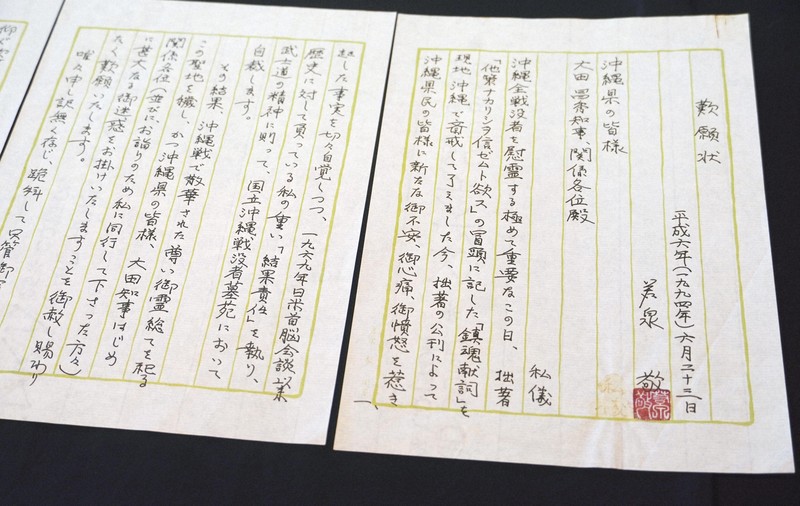 歎願状
平成六年(一九九四年)六月二十三日
若泉 敬
沖縄県の皆様
大田昌秀知事、関係各位殿
私儀
沖縄全戦没者を慰霊する極めて重要なこの日、拙著
『他策ナカリシヲ信ゼムト欲ス』の冒頭に記した「鎮魂献詞」を
現地沖縄で斎戒して了えました今、拙著の公刊によって
沖縄県民の皆様に新たな御不安、御心痛、御憤怒を惹き
一、
起した事実を切々自覚しつつ、一九六九年日米首脳会談以来
歴史に対して負っている私の重い「結果責任」を執り、
武士道の精神に則って、国立沖縄戦没者墓苑において
自裁します。
その結果、沖縄戦で散華された尊い御霊総てを祀る
この聖地を穢し、かつ沖縄県の皆様、大田知事はじめ
関係各位(並びにお詣りのため私に同行して下さった方々)
に甚大なる御迷惑をお掛けいたしますことを御赦し賜わり
たく歎願いたします。
唯々申し訳無く存じ、跪拜して